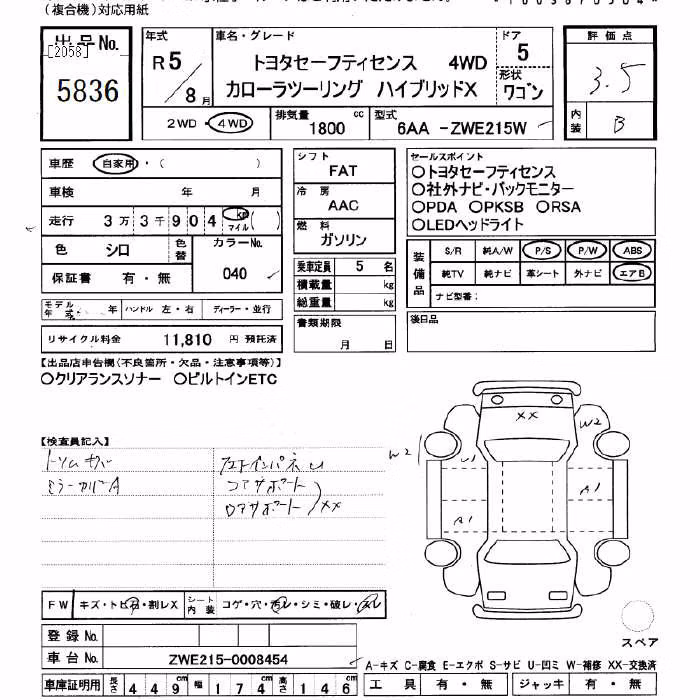 (複合機)対応用紙
出品No.
[2058]
5836
年式
R5/8月
車名・グレード
トヨタセーフティセンス 4WD
カローラツーリング ハイブリッドX
ドア
5
形状
ワゴン
2WD・4WD
排気量
1800 cc
型式
6AA -ZWE215W
評価点
3.5
内装
B
車歴 自家用・( )
車検 年 月
走行 3万3千904 km マイル( )
色 シロ 色替 カラーNo. 040
保証書 有・無
モデル年式 年 ハンドル 左・右 ディーラー・並行
リサイクル料金 11,810 円 預託済
シフト
FAT
冷房
AAC
燃料
ガソリン
乗車定員 5 名
積載量 kg
総重量 kg
書類期限
月 日
セールスポイント
○トヨタセーフティセンス
○社外ナビ・バックモニター
○PDA ○PKSB ○RSA
○LEDヘッドライト
装備品
S/R 純A/W P/S P/W ABS
純TV 純ナビ 革シート 外ナビ エアB
ナビ型番:
後日品
【出品店申告欄(不良箇所・欠品・注意事項等)】
○クリアランスソナー ○ビルトインETC
【検査員記入】
ミラーカバーA
コアサポート
ロアサポート
XX
XX
W2
W2
U1
A1
A1
FW キズ・トビ石・割レX シート内装 コゲ・穴・汚レ・シミ・破レ・スレ
登録No.
車台No. ZWE215-0008454
車庫証明用 長さ 449cm 幅 174cm 高さ 146cm
スペア
A-キズ C-腐食 E-エクボ S-サビ U-凹ミ W-補修 XX-交換済
工具 有・無 ジャッキ 有・無